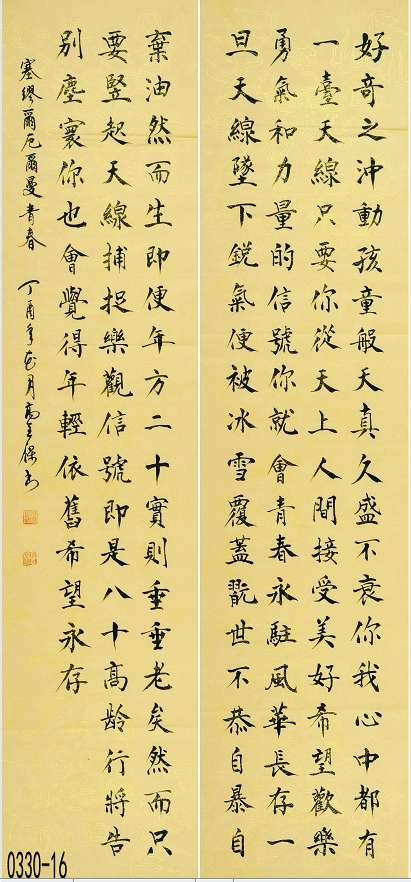 好奇之沖動孩童般天真久盛不衰你我心中都有
一臺天線只要你從天上人間接受美好希望歡樂
勇氣和力量的信號你就會青春永駐風華長存一
旦天線墜下銳氣便被冰雪覆蓋翫世不恭自暴自
棄油然而生即便年方二十實則垂垂老矣然而只
要豎起天線捕捉樂觀信號即是八十高齡行將告
別塵寰你也會覺得年輕依舊希望永存
塞繆爾厄爾曼青春 丁酉年花月高金保书
0330-16